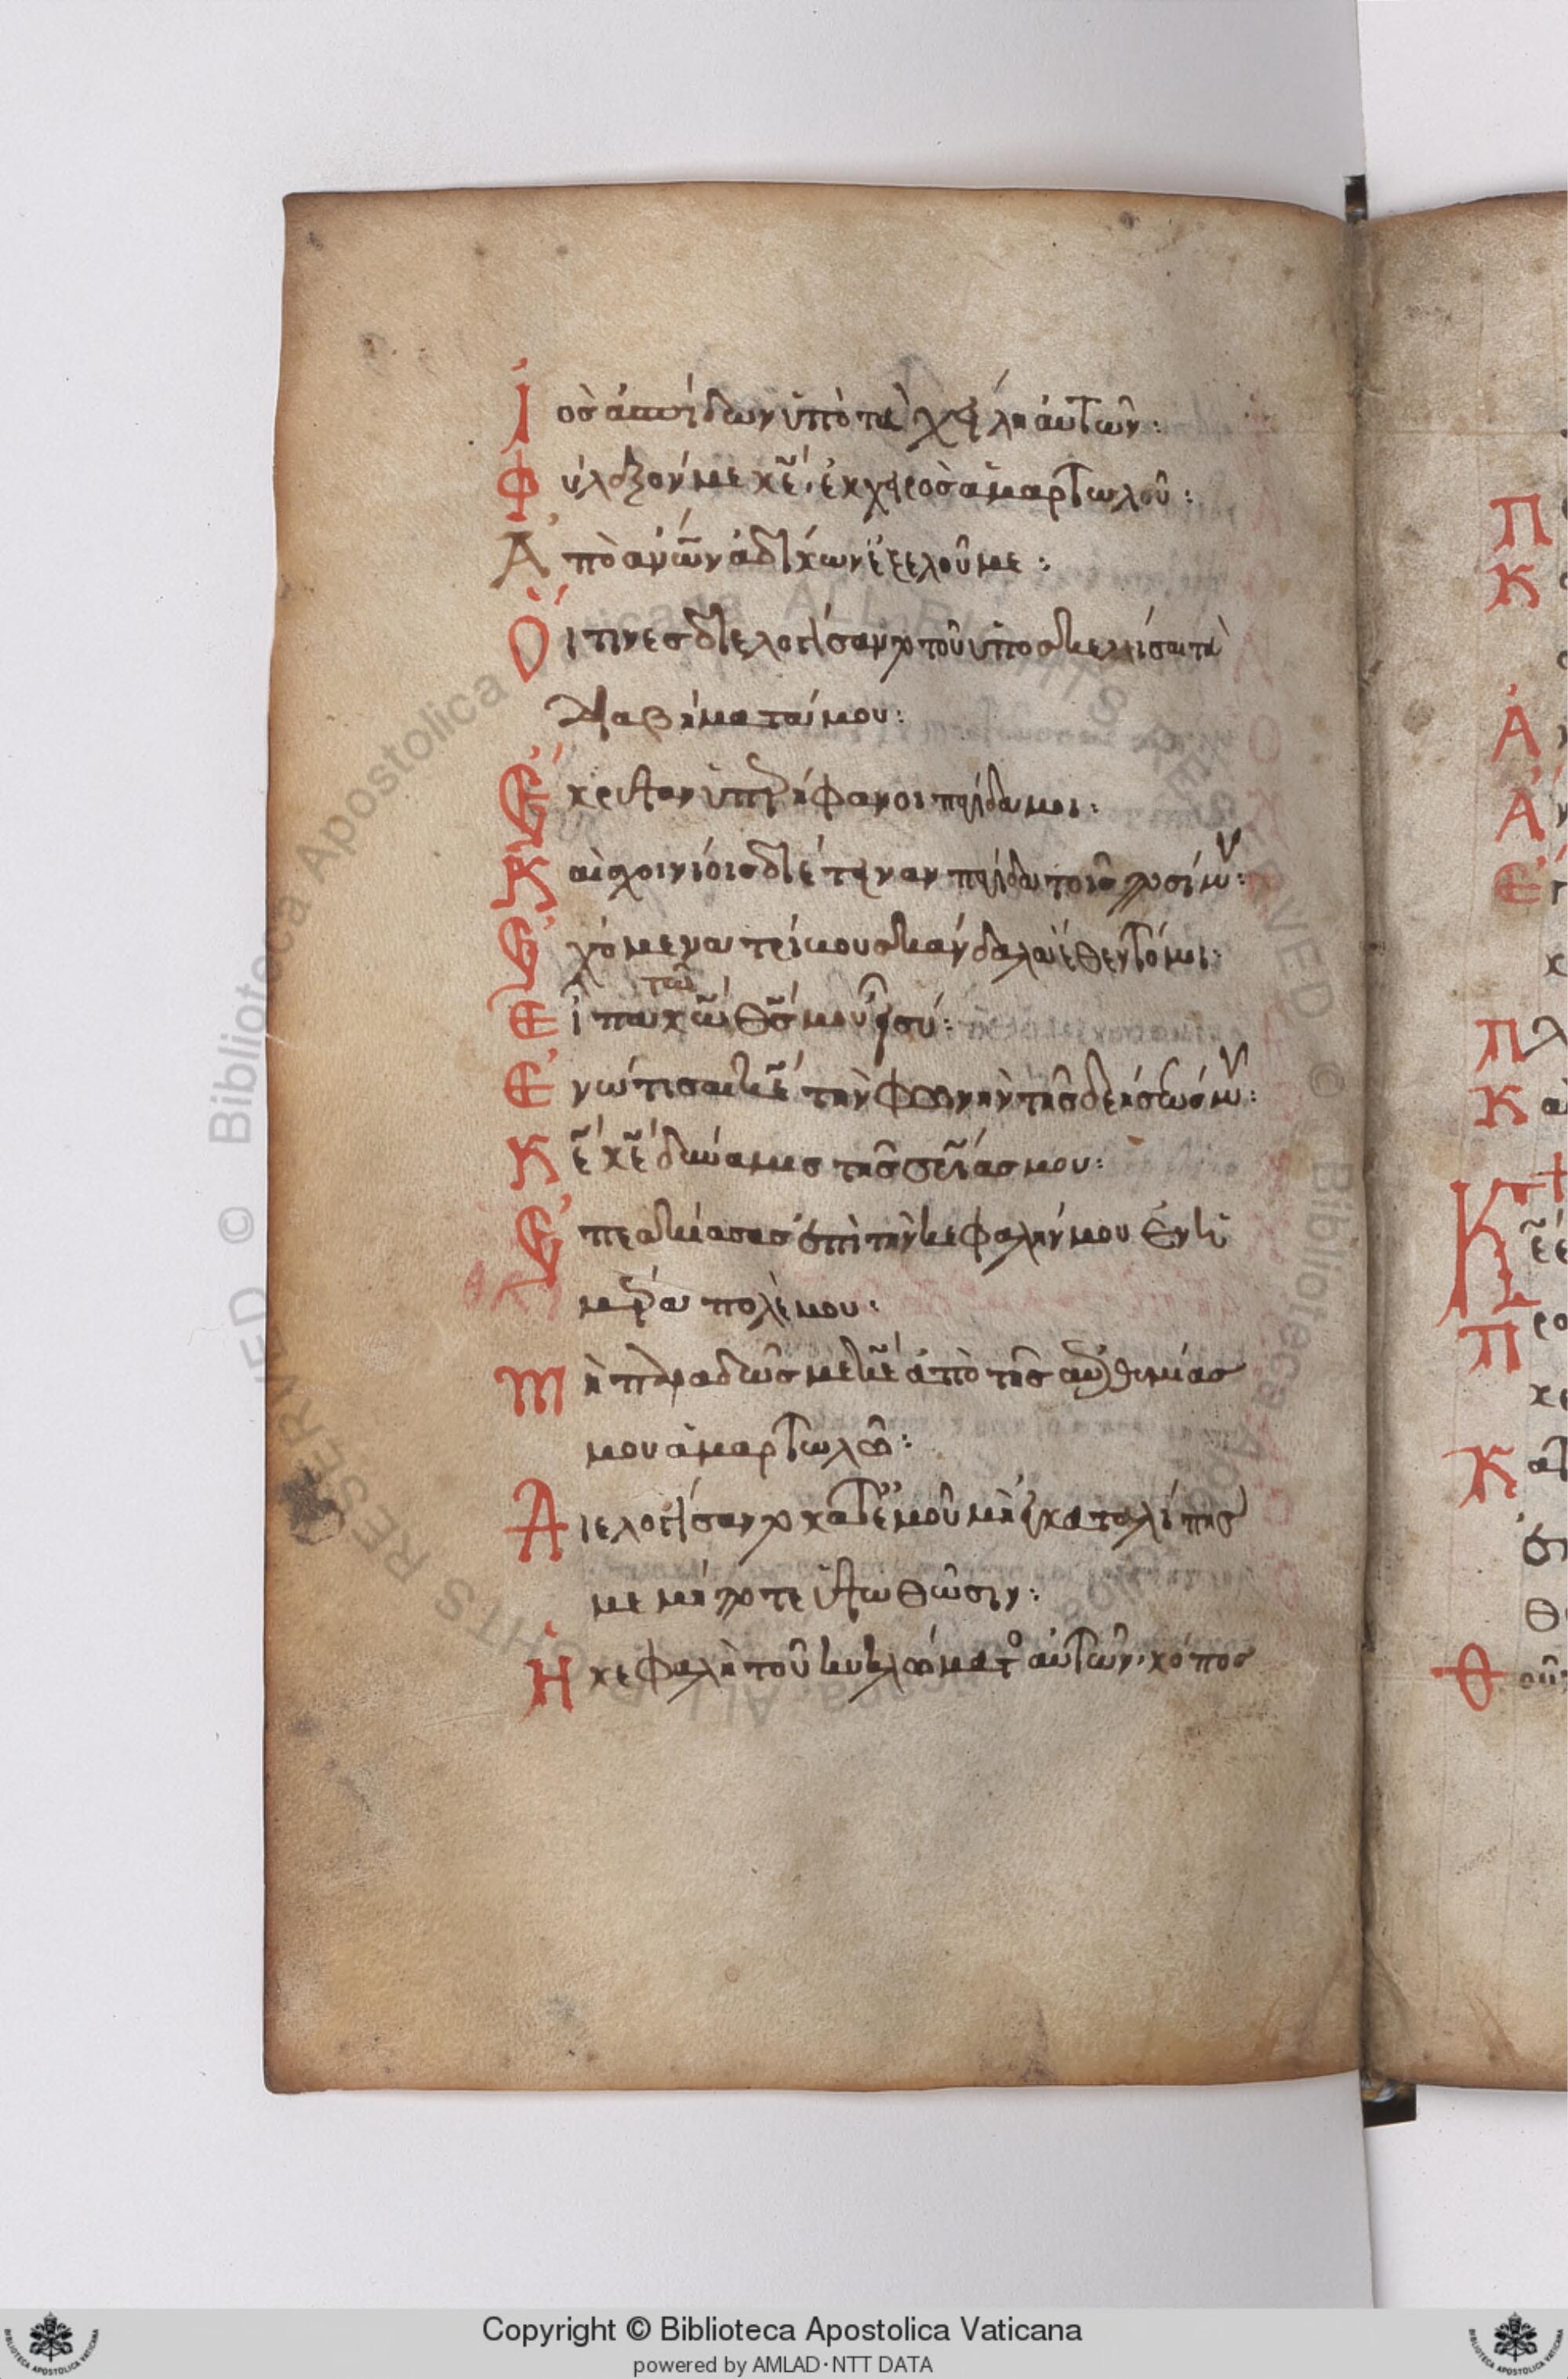 Ἰὸς ἀσπίδων ὑπὸ τὰ χείλη αὐτῶν:
Φύλαξόν με κ̅ε̅, ἐκ χειρὸς ἁμαρτωλοῦ:
Ἀπὸ ἀν̅ω̅ν ἀδίκων ἐξελοῦ με:
Οἵτινες διελογίσαντο τοῦ ὑποσκελίσαι τὰ
διαβήματά μου:
Ἔκρυψαν ὑπερήφανοι παγίδα μοι:
Καὶ σχοινίοις διέτειναν παγίδα τοῖς ποσί μου:
Ἐχόμενα τρίβου σκάνδαλα ἔθεντό μοι:
Εἶπα τῶ κ̅ω̅ θ̅ς̅ μου εἶ σύ:
Ἐνώτισαι κ̅ε̅ τὴν φωνὴν τῆς δεήσεώς μου:
Κ̅ε̅ κ̅ε̅ δύναμις τῆς σ̅ρ̅ίας μου:
Ἐπεσκίασας ἐπὶ τὴν κεφαλήν μου ἐν ἡ
μέρα πολέμου:
Μὴ παραδῶς με κ̅ε̅ ἀπὸ τῆς ἐπιθυμίας
μου ἁμαρτωλῶ:
Διελογίσαντο κατ' ἐμοῦ μὴ ἐγκαταλίπης
με μήποτε ὑψωθῶσιν:
Ἡ κεφαλὴ τοῦ κυκλώματος αὐτῶν, κόπος
Copyright © Biblioteca Apostolica Vaticana
powered by AMLAD·NTT DATA